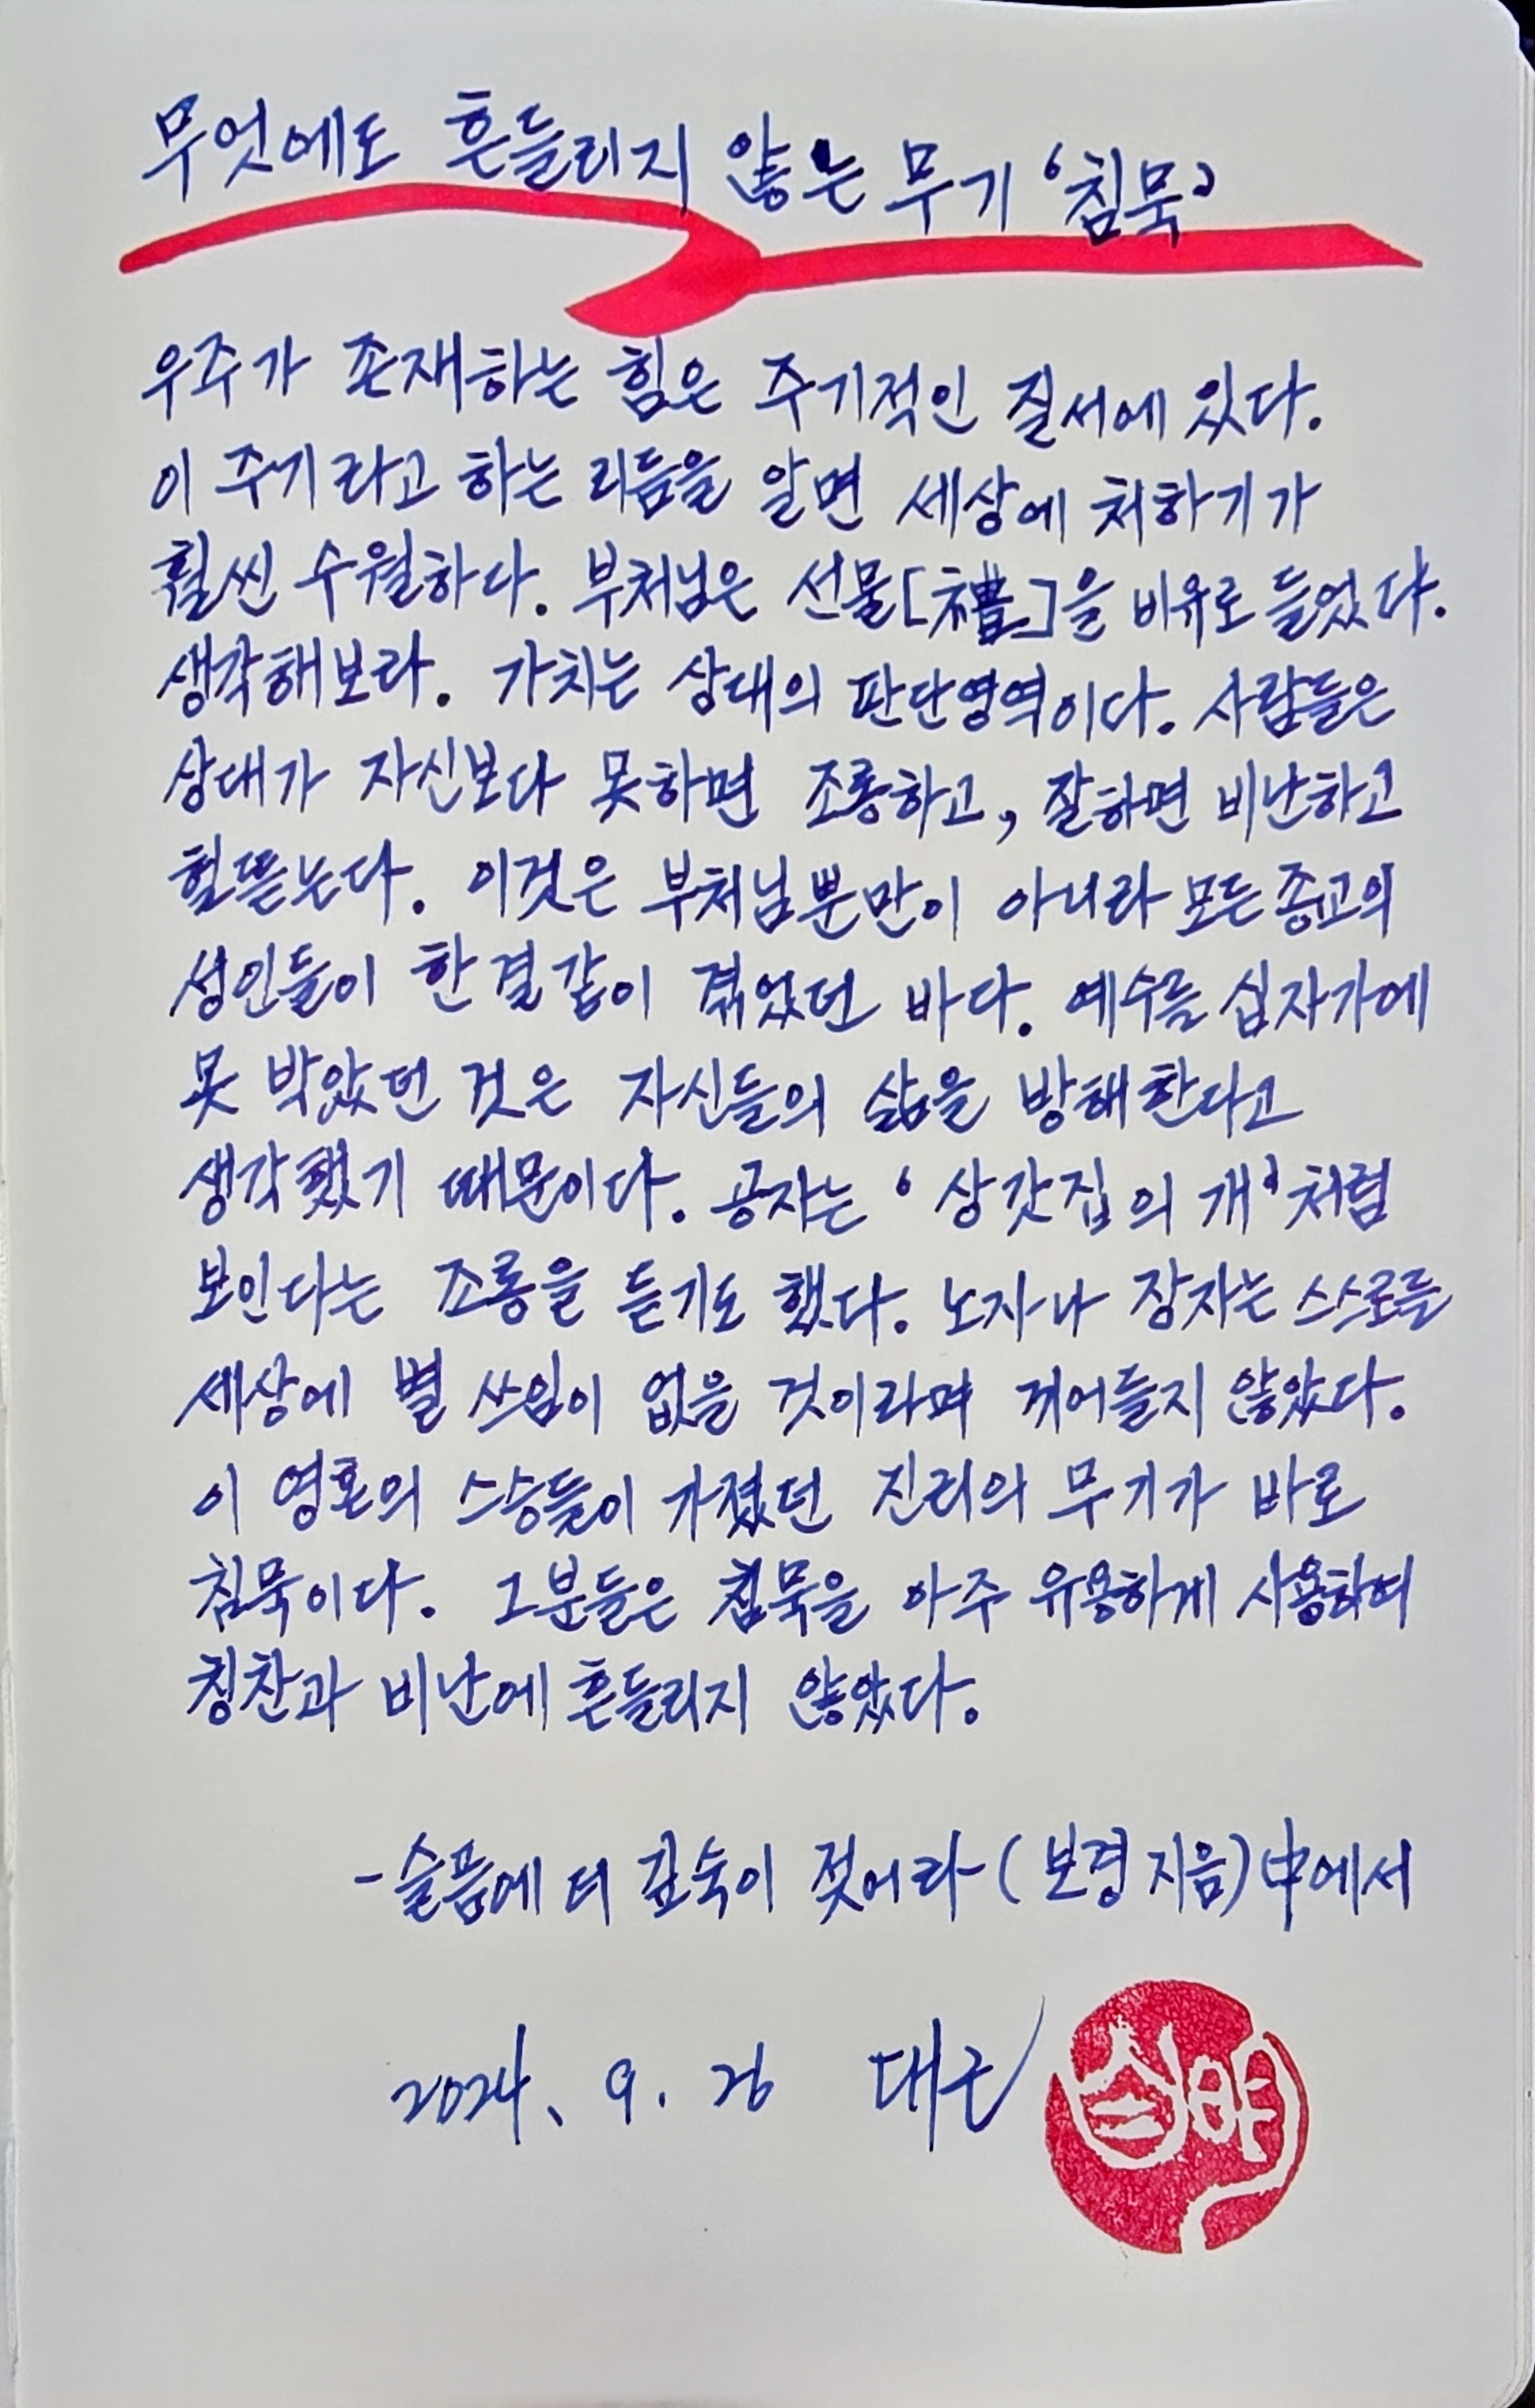 무엇에도 흔들리지 않는 무기 '침묵'
우주가 존재하는 힘은 주기적인 질서에 있다.
이 주기라고 하는 리듬을 알면 세상에 처하기가
훨씬 수월하다. 부처님은 선물[禮]을 비유로 들었다.
생각해보라. 가치는 상대의 판단영역이다. 사람들은
상대가 자신보다 못하면 조롱하고, 잘하면 비난하고
헐뜯는다. 이것은 부처님뿐만이 아니라 모든 종교의
성인들이 한결같이 겪었던 바다. 예수를 십자가에
못 박았던 것은 자신들의 삶을 방해한다고
생각했기 때문이다. 공자는 '상갓집의 개'처럼
보인다는 조롱을 듣기도 했다. 노자나 장자는 스스로를
세상에 별 쓰임이 없을 것이라며 껴어들지 않았다.
이 영혼의 스승들이 가졌던 진리의 무기가 바로
침묵이다. 그분들은 침묵을 아주 유용하게 사용하여
칭찬과 비난에 흔들리지 않았다.
-슬픔에 더 깊숙이 젖어라-(보경 지음)中에서
2024. 9. 26 대근